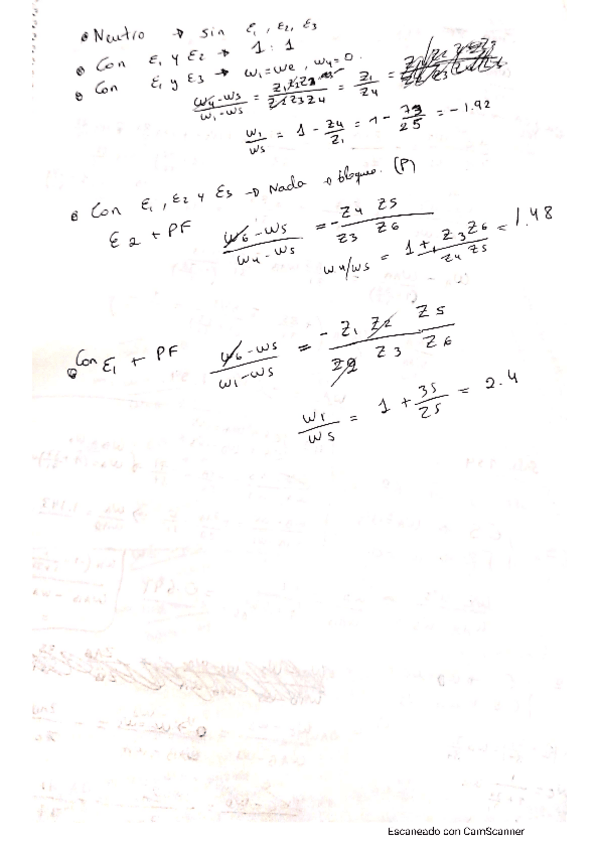 • Neutro → sin ε1, ε2, ε3
• Con ε1 y ε2 → 1:1
• Con ε1 y ε3 → w1=we, w4=0.
(w4-ws)/(w1-ws) = (z1z2z3)/(z2z3z4) = z1/z4 =
w1/ws = 1 - z4/z1 = 1 - 73/25 = -1.92
• Con ε1, ε2 y ε3 → Nada → bloqueo. (P)
ε2 + PF (w6-ws)/(w4-ws) = -(z4 z5)/(z3 z6)
w4/ws = 1 + (z3z6)/(z4z5) = 1.48
• Con ε1 + PF (w6-ws)/(w1-ws) = -(z1 z2 z5)/(z2 z3 z6)
w1/ws = 1 + 35/25 = 2.4
Escaneado con CamScanner